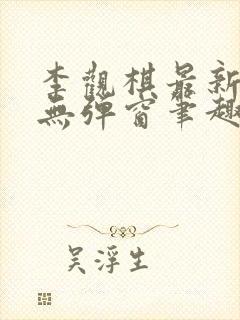 李觀棋最新
無彈窗筆趣
吴浮生